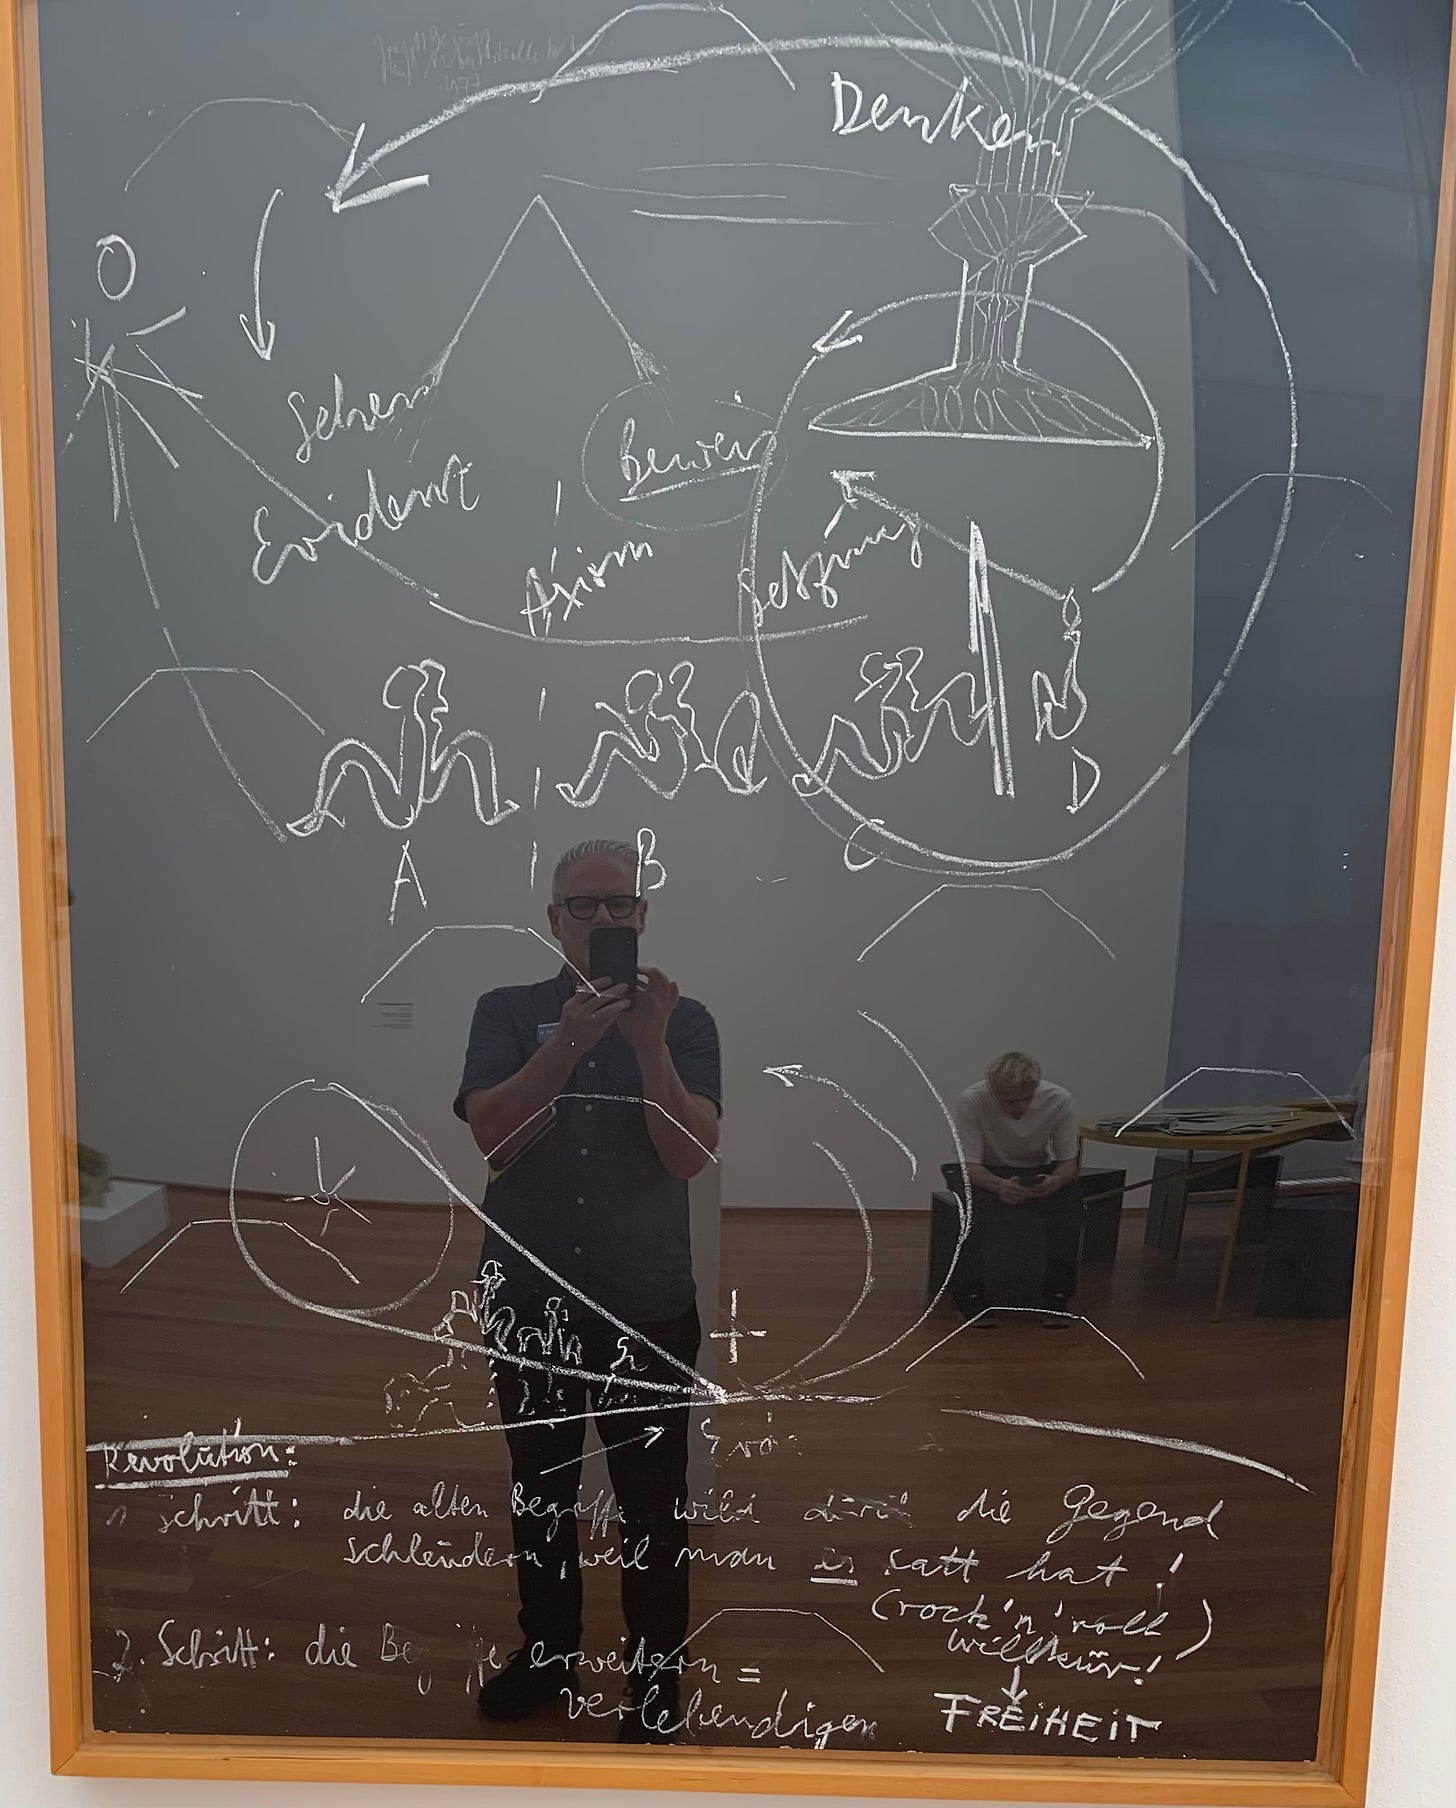 1977
Denken
O
Sehen
Evidenz
Beweis
Axiom
Setzung
A
B
C
D
+
Revolution:
1 Schritt: die alten Begriffe wild durch die Gegend
schleudern, weil man es satt hat!
(rock'n'roll
willkür!)
↓
2. Schritt: die Begriffe erweitern =
verlebendigen
FREIHEIT